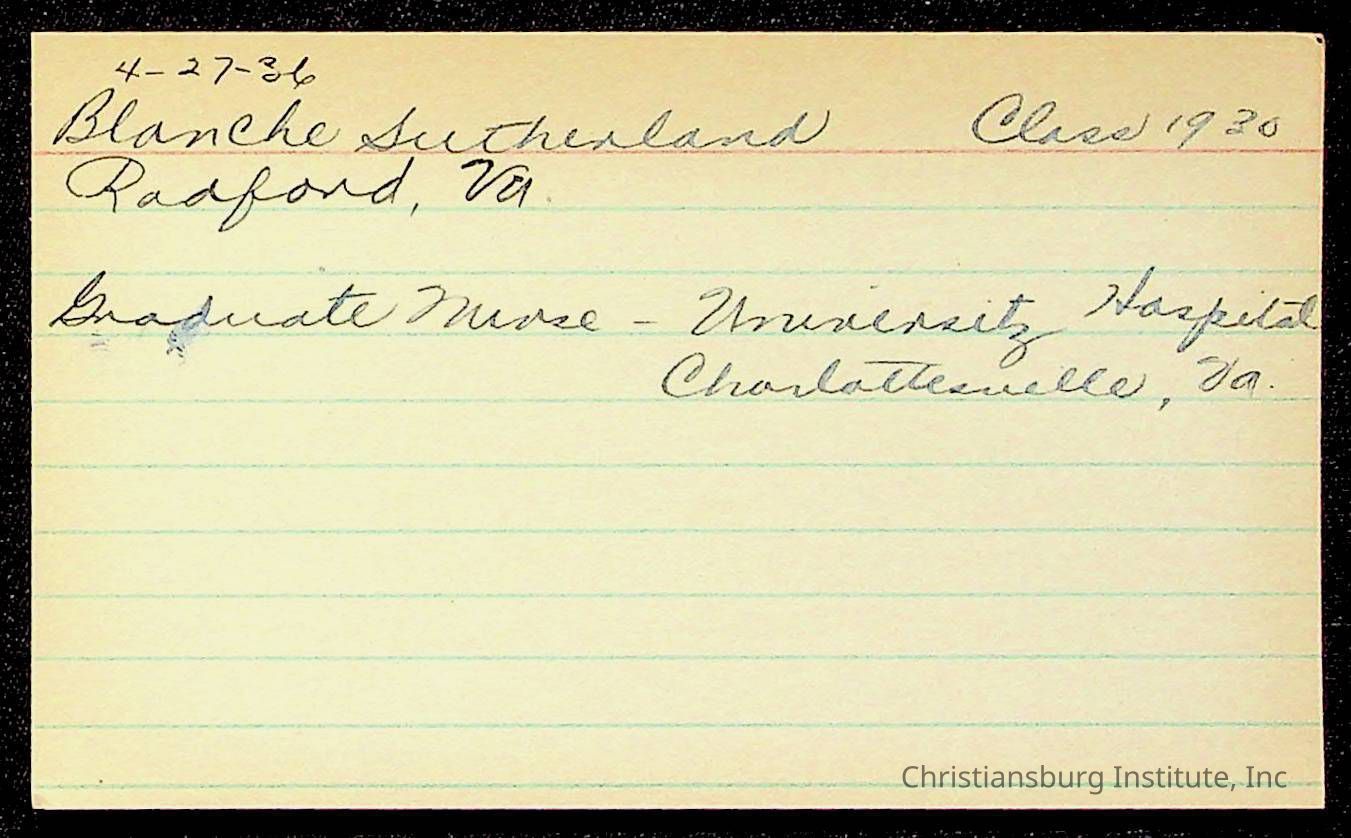 4-27-36
Blanche Sutherland Class 1930
Radford, Va.
Graduate Nurse - University Hospital
Charlottesville, Va.
Christiansburg Institute, Inc